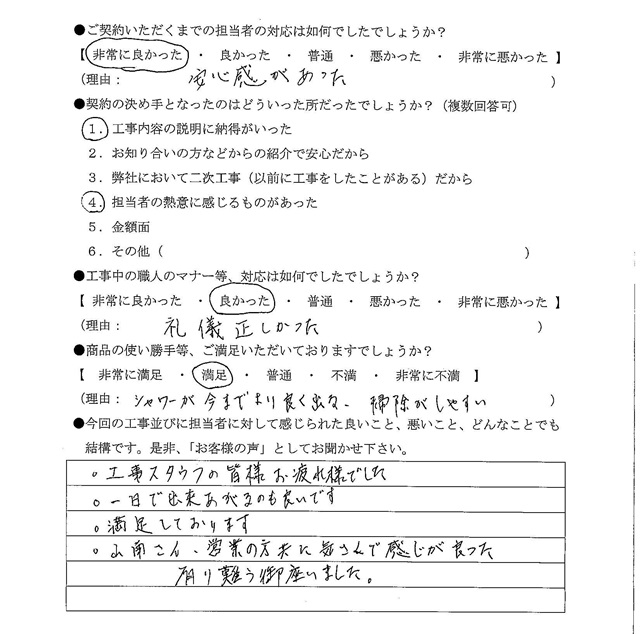 ●ご契約いただくまでの担当者の対応は如何でしたでしょうか？
【 非常に良かった ・ 良かった ・ 普通 ・ 悪かった ・ 非常に悪かった 】
（理由： 安心感があった ）
●契約の決め手となったのはどういった所だったでしょうか？（複数回答可）
１．工事内容の説明に納得がいった
２．お知り合いの方などからの紹介で安心だから
３．弊社において二次工事（以前に工事をしたことがある）だから
４．担当者の熱意に感じるものがあった
５．金額面
６．その他（ ）
●工事中の職人のマナー等、対応は如何でしたでしょうか？
【 非常に良かった ・ 良かった ・ 普通 ・ 悪かった ・ 非常に悪かった 】
（理由： 礼儀正しかった ）
●商品の使い勝手等、ご満足いただいておりますでしょうか？
【 非常に満足 ・ 満足 ・ 普通 ・ 不満 ・ 非常に不満 】
（理由： シャワーが今までより良く出る、掃除がしやすい ）
●今回の工事並びに担当者に対して感じられた良いこと、悪いこと、どんなことでも
結構です。是非、「お客様の声」としてお聞かせ下さい。
○工事スタッフの皆様お疲れ様でした
○一日で出来あがるのも良いです
○満足しております
○山南さん、営業の方共に 感じが良かった
有り難う御座いました。